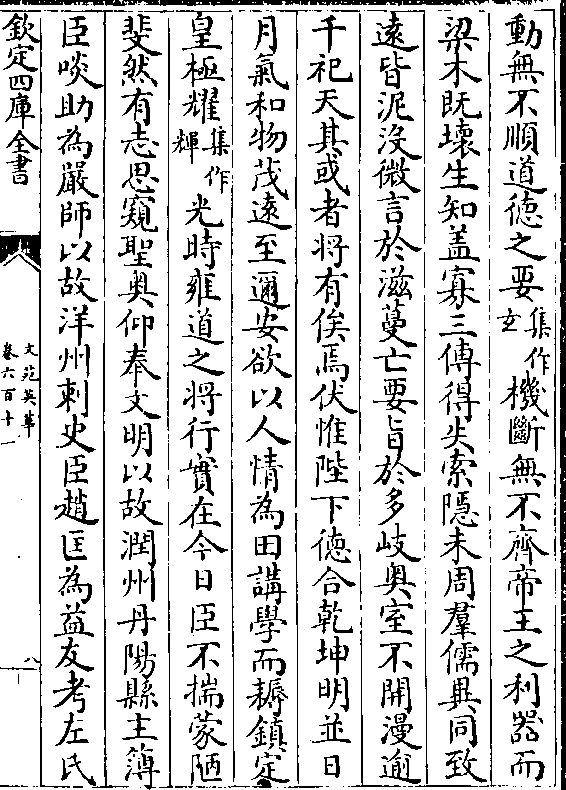 動無不順道徳之要集作玄機斷無不齊帝王之利器而
梁木既壞生知盖寡三傳得失索隠未周羣儒異同致
遠皆泥没微言於滋蔓亡要㫖於多岐奥室不開漫逾
千祀天其或者將有俟焉伏惟陛下徳合乾坤明並日
月氣和物茂遠至邇安欲以人情為田講學而耨鎮定
皇極耀集作輝光時雍道之將行實在今日臣不揣蒙陋
斐然有志思窺聖奥仰奉文明以故潤州丹陽縣主簿
臣啖助為嚴師以故洋州刺史臣趙匡為益友考左氏
欽定四庫全書
文苑英華
卷六百十一
八